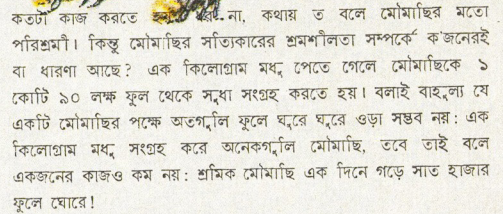 কতটা কাজ করতে না, কথায় ত বলে মৌমাছির মতো
পরিশ্রমী। কিন্তু মৌমাছির সত্যিকারের শ্রমশীলতা সম্পর্কে ক'জনেরই
বা ধারণা আছে? এক কিলোগ্রাম মধু পেতে গেলে মৌমাছিকে ১
কোটি ৯০ লক্ষ ফুল থেকে সুধা সংগ্রহ করতে হয়। বলাই বাহুল্য যে
একটি মৌমাছির পক্ষে অতগুলি ফুলে ঘুরে ঘুরে ওড়া সম্ভব নয়: এক
কিলোগ্রাম মধু সংগ্রহ করে অনেকগুলি মৌমাছি, তবে তাই বলে
একজনের কাজও কম নয়: শ্রমিক মৌমাছি এক দিনে গড়ে সাত হাজার
ফুলে ঘোরে!